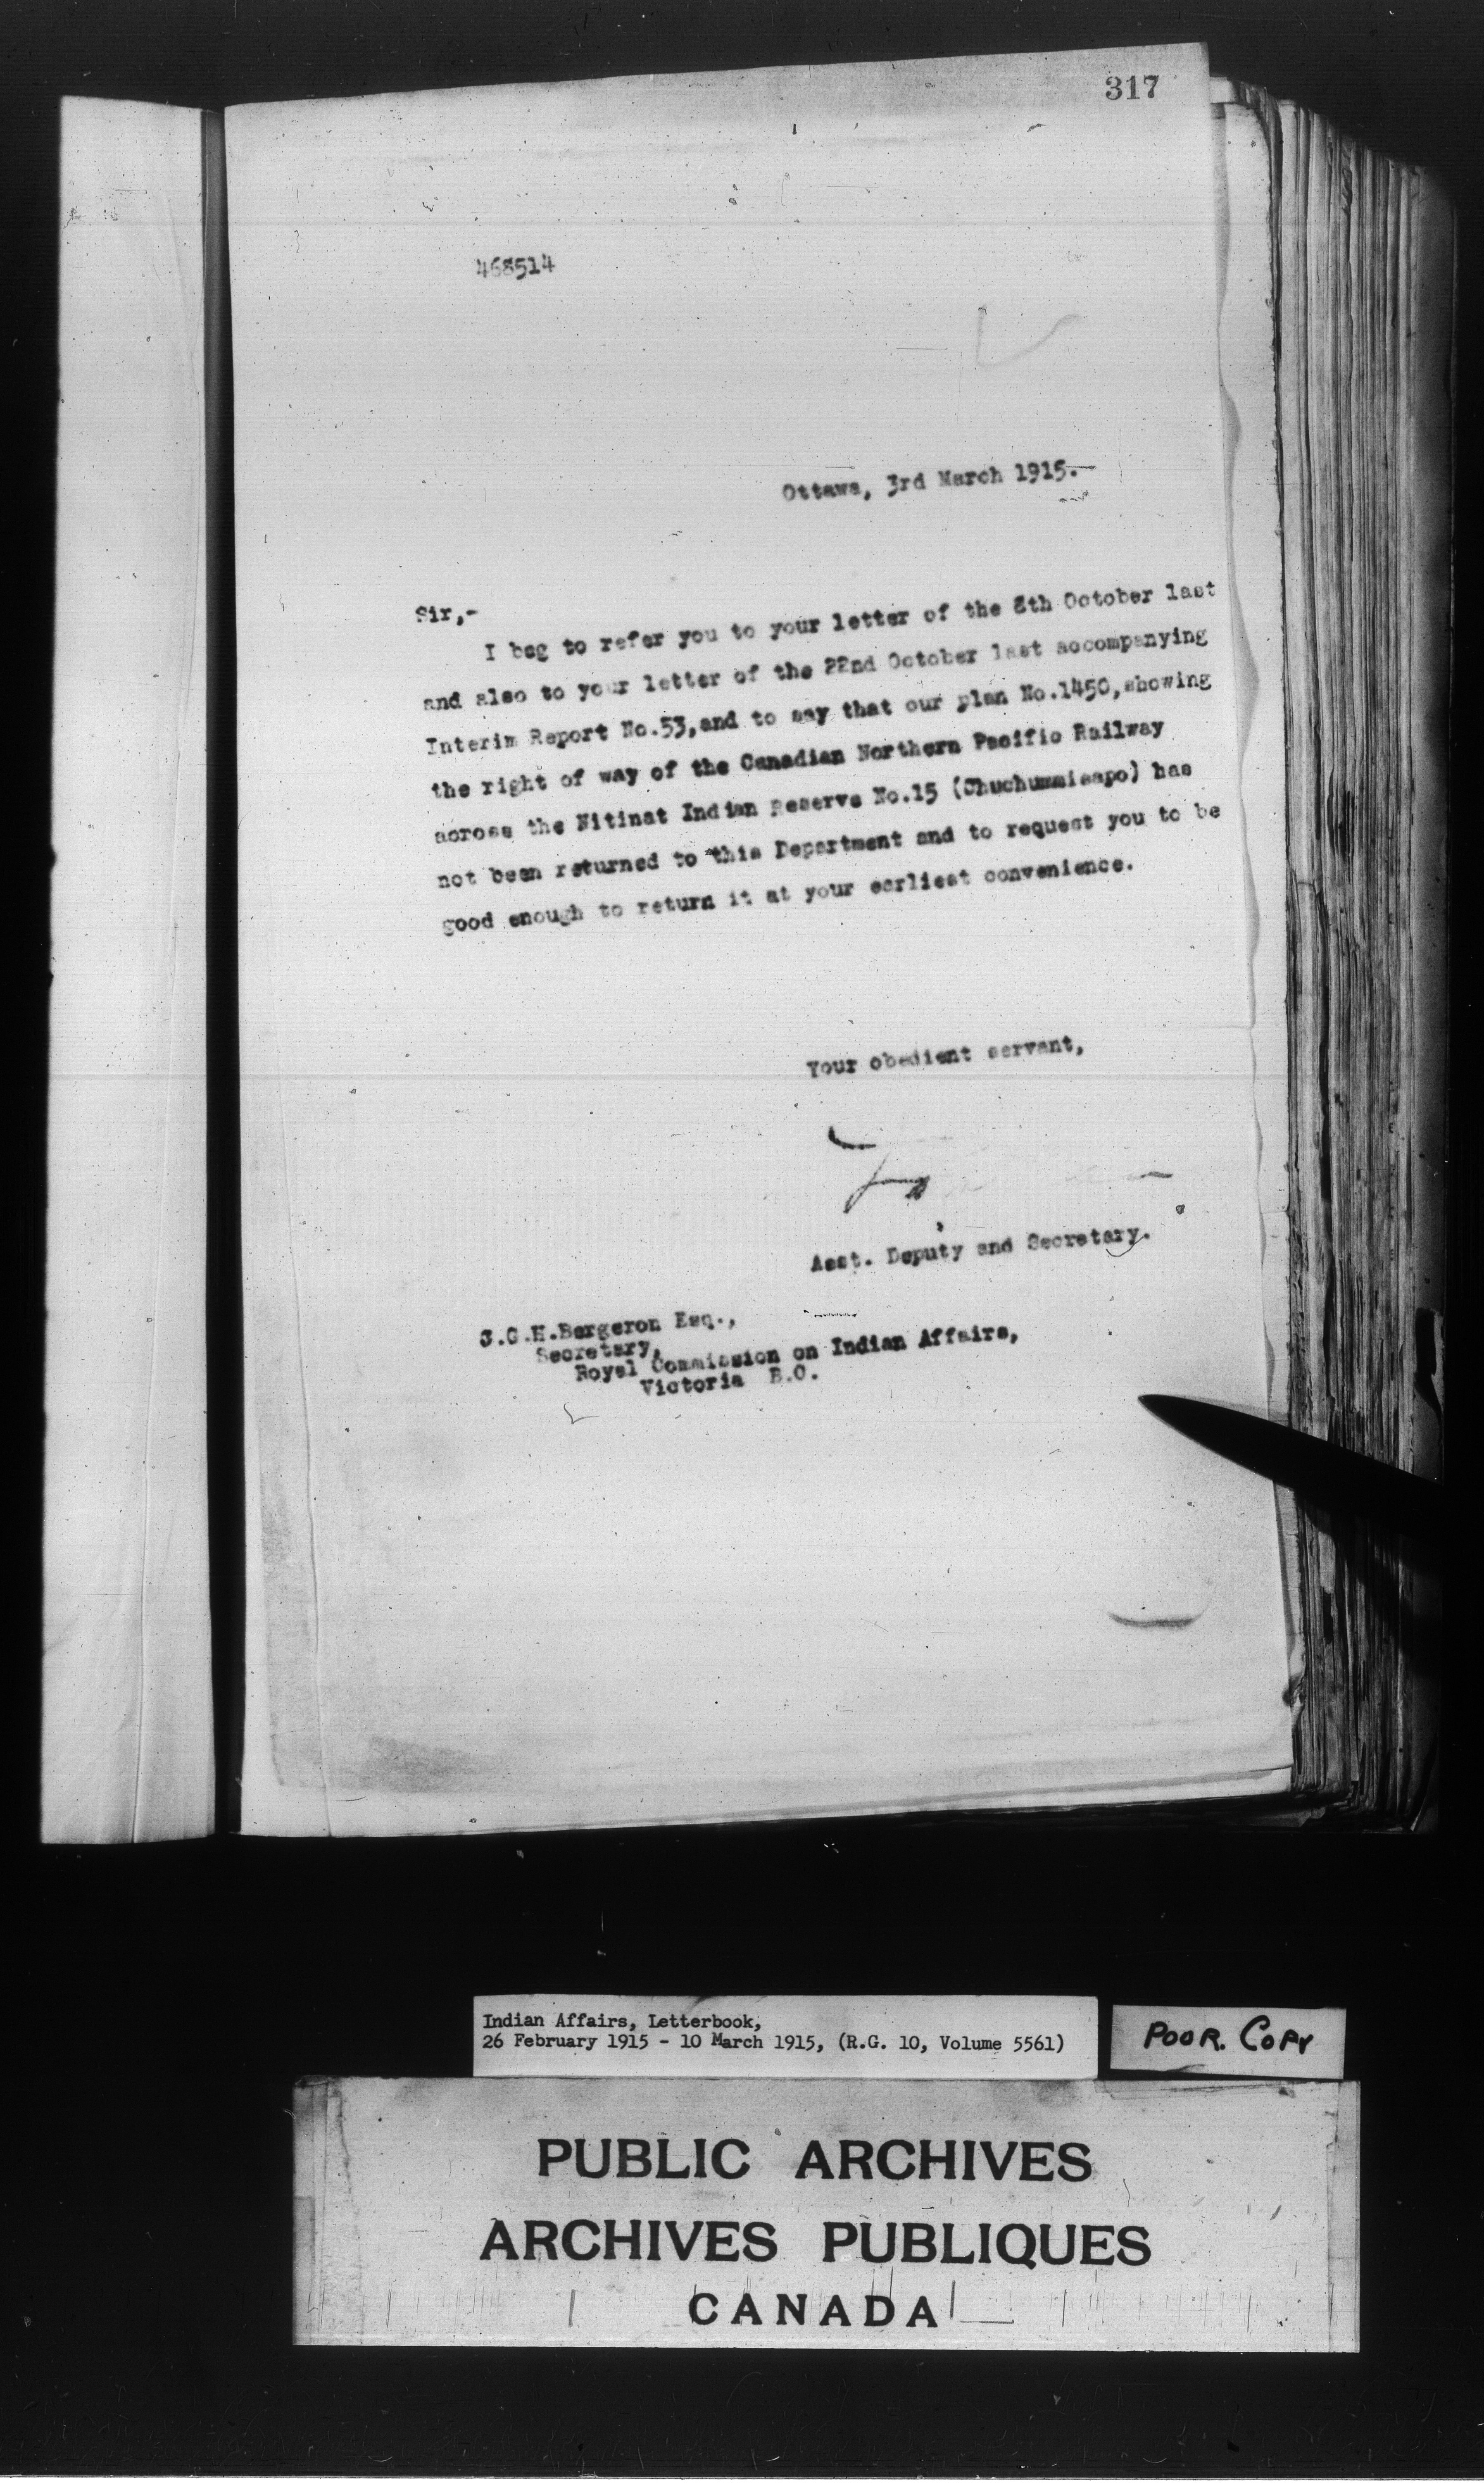 317
468514
Ottawa, 3rd March 1915.
Sir,-
I beg to refer you to your letter of the 8th October last
and also to your letter of the 22nd October last accompanying
Interim Report No.53, and to say that our plan No.1450, showing
the right of way of the Canadian Northern Pacific Railway
across the Nitinat Indian Reserve No.15 (Chuchummisapo) has
not been returned to this Department and to request you to be
good enough to return it at your earliest convenience.
Your obedient servant,
Asst. Deputy and Secretary.
J.G.H.Bergeron Esq.,
Secretary,
Royal Commission on Indian Affairs,
Victoria B.C.
Indian Affairs, Letterbook,
26 February 1915 - 10 March 1915, (R.G. 10, Volume 5561)
POOR. COPY
PUBLIC ARCHIVES
ARCHIVES PUBLIQUES
CANADA